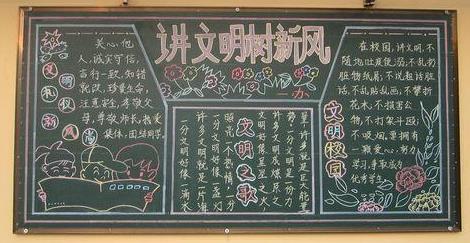 讲文明树新风
一.办
关心他
人,诚实守信,
言行一致,知错
就改,珍爱生命,
注意安全,孝敬父
母,尊敬师长,热爱
集体,团结同学.
文明
礼仪
新风尚
文明之歌
一分文明好像一滴水
许多文明就是一片海
一分文明好像一盏灯
照亮一个热情,一分
文明好像星星之火,
许多文明成燎原之
势,一分文明是一份力
量,许多就是正大能量
在校园,讲文明,不
随地吐痰便溺,不乱扔
脏物纸屑,不说粗话脏
话,不乱贴乱画,不攀折
花木,不损害公
物,不打架斗殴,
不吸烟,要拥有
一颗爱心,努力
学习,争取当
优秀学生.
文明校园